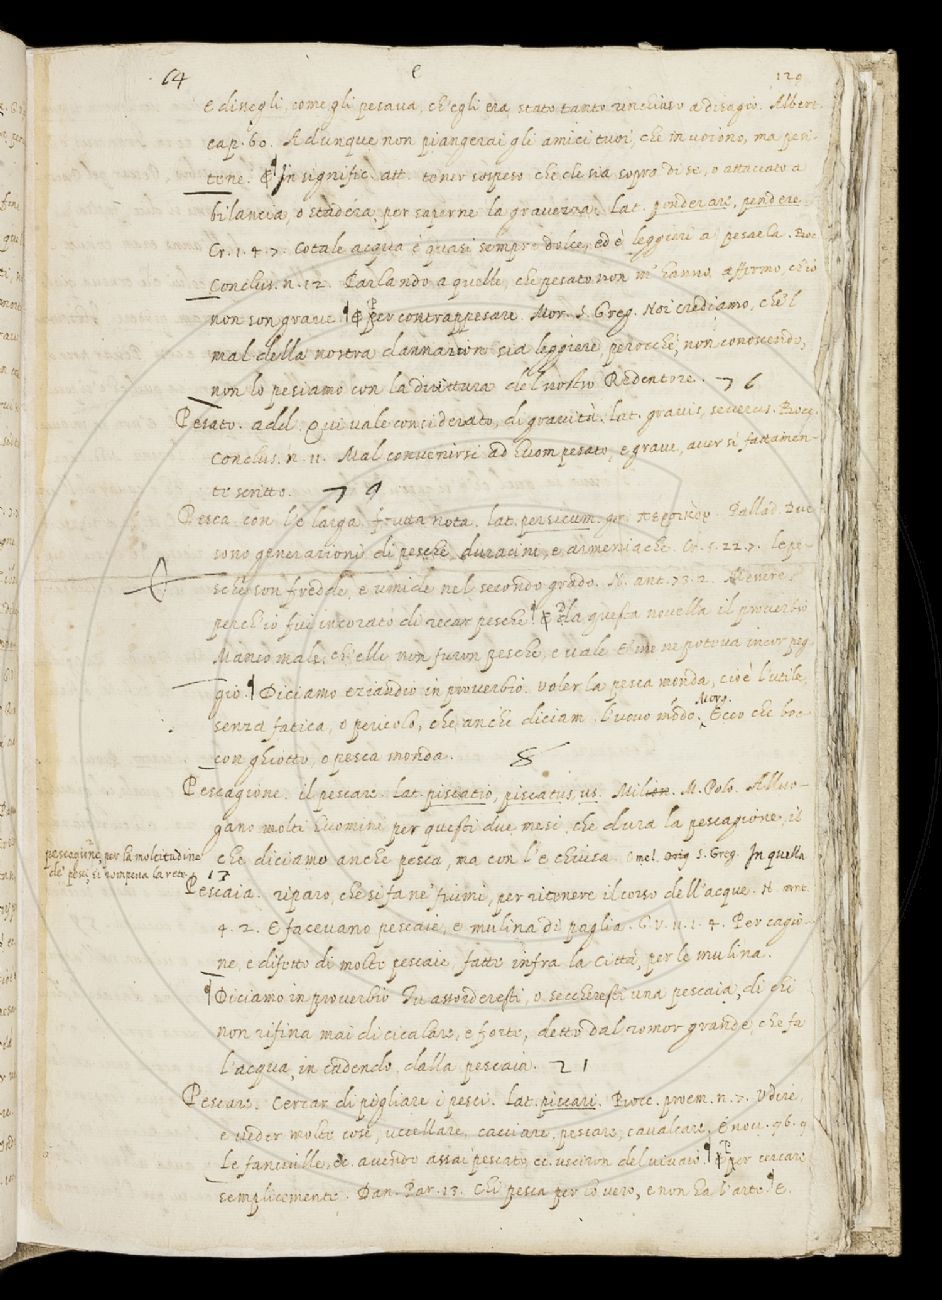 64 e 120
E dissegli, come gli pesava, ch'egli era stato tanto rinchiuso a disagio. Albert.
cap. 60. Adunque non piangerai gli amici tuoi, che muoiono, ma pesi-
tene. ¶ In signific. att. tener sospeso che che sia sopra di se, o attaccato a
bilancia, o stadera, per saperne la gravezza. Lat. ponderare, pendere.
Cr. 1. 4. 7. Cotale acqua è quasi sempre dolce, ed è leggiere a pesarla. Bocc.
Conclus. n. 12. Parlando a quelle, che pesato non m'hanno, affermo, ch'io
non son grave. ¶ Per contrappesare. Mor. S. Greg. Noi crediamo, che'l
mal della nostra dannazione sia leggiere, perocchè, non conoscendo,
non lo pesiamo con la dirittura del nostro Redentore. 76
Pesato. add. Qui vale considerato, di gravità. Lat. gravis, severus. Bocc.
Conclus. n. 11. Mal convenirsi ad huom pesato, e grave, aver sì fattamen-
te scritto. 79
Pesca con l'e larga. frutta nota. lat. persicum. gr. περσικὸν. Pallad. Due
sono generazioni di pesche, duracini, e armeniache. Cr. 5. 22. 7. Le pe-
sche son fredde, e umide nel secondo grado. N. ant. 73. 2. Messere
perch'io fui incorato di recar pesche. ¶ Da questa novella il proverbio
Manco male, ch'elle non furon pesche, e vale E' me ne poteva incor peg-
gio. ¶ Diciamo eziandio in proverbio. Voler la pesca monda, cioè l'utile
senza fatica, o pericolo, che anche diciam l'uovo mondo. Morg. Ecco che boc-
con ghiotto, o pesca monda. 8
Pescagione. il pescare. lat. piscatio, piscatus, us. M. Polo. Alluo-
gano molti huomini per questi due mesi, che dura la pescagione, il
che diciamo anche pesca, ma con l'e chiusa. Omel. Orig. S. Greg. In quella
pescagione, per la moltitudine
de' pesci, si rompeva la rete. 13
Pescaia. riparo, che si fa ne' fiumi, per ritenere il corso dell'acque. N. ant.
4. 2. E facevano pescaie, e mulina di paglia. G. V. 11. 1. 4. Per cagio-
ne, e difetto di molte pescaie, fatte infra la Città, per le mulina.
¶ Diciamo in proverbio Tu assorderesti, o seccheresti una pescaia, di chi
non rifina mai di cicalare, e forte, detto dal romor grande, che fa
l'acqua, in cadendo, dalla pescaia. 21
Pescare. Cercar di pigliare i pesci. Lat. piscari. Bocc. proem. n. 7. Udire,
e veder molte cose, uccellare, cacciare, pescare, cavalcare, E nov. 96. 9
Le fanciulle, &c. avendo assai pescato, &c. usciron del vivaio. ¶ Per cercare
semplicemente. Dan. Par. 13. Chi pesca per lo vero, e non ha l'arte. ¶ E.